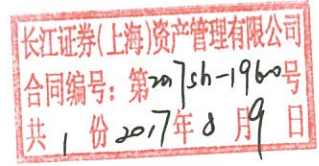 长江证券(上海)资产管理有限公司
合同编号：第2017sh-1960号
共 1 份 2017年8月9日